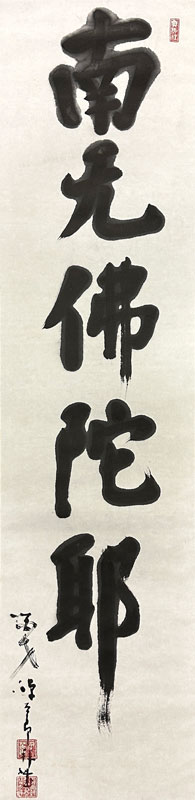 南无佛陀耶